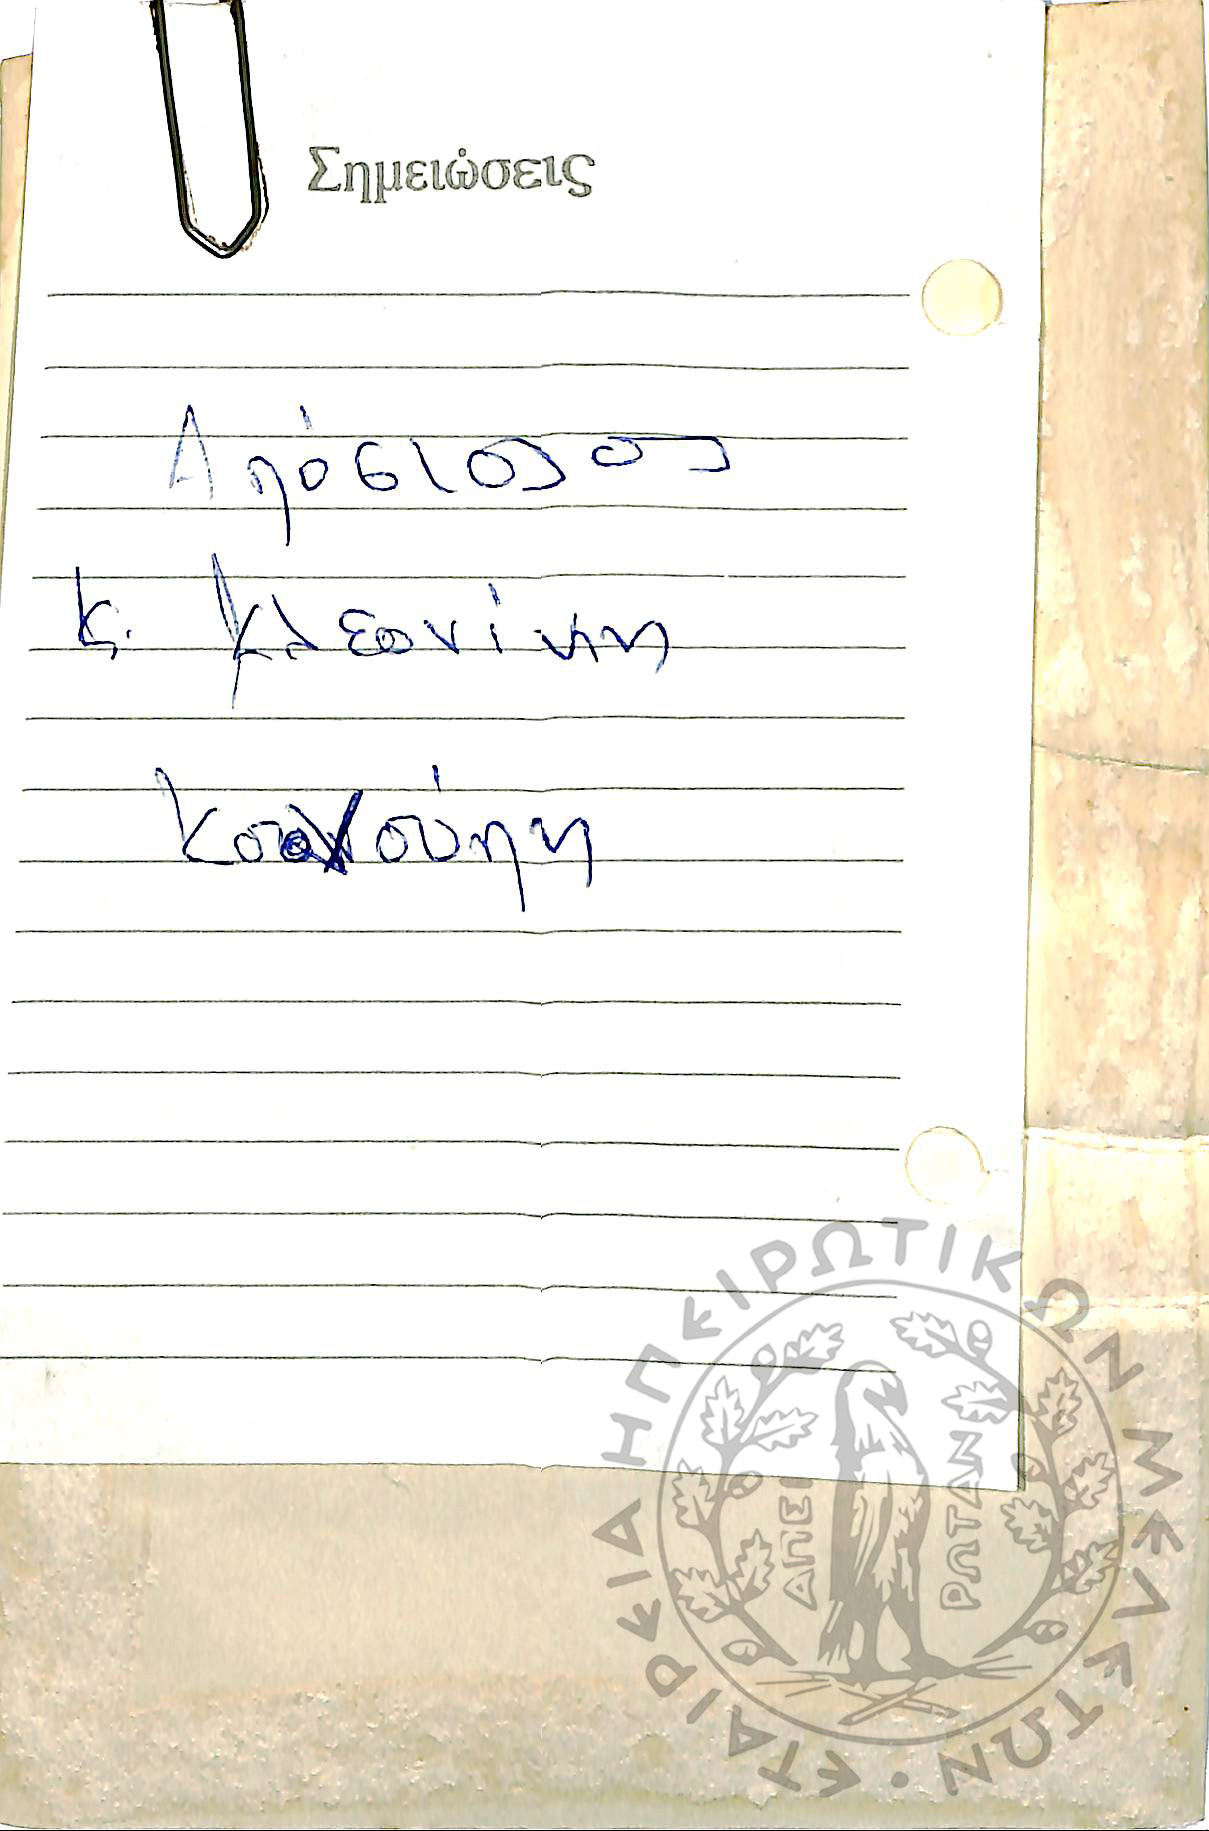 Σημειώσεις
Απόστολος
κ. Κλεονίκη
ΕΤΑΙΡΕΙΑ ΗΠΕΙΡΩΤΙΚΩΝ ΜΕΛΕΤΩΝ
ΑΠΕΙ
ΡΩΤΑΝ